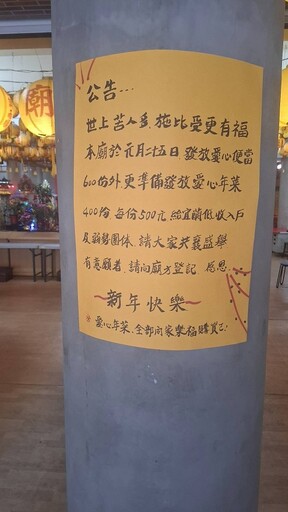 朝
公告...
世上苦人多.施比受更有福
本廟於元月二十五日 發放愛心便當
600份外.更準備發放愛心年菜
400份 每份500元 給宜蘭低收入戶
及弱勢團体. 請大家共襄盛舉
有意願者 請向廟方登記 感恩
~新年快樂~
※愛心年菜.全部向家樂福購買